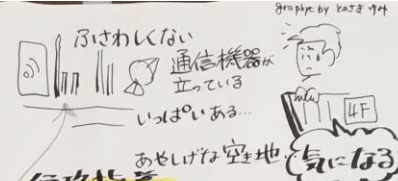 graphic by とみさき
ふさわしくない
通信機器が
立っている
いっぱいある...
4F
あやしげな空き地
気になる